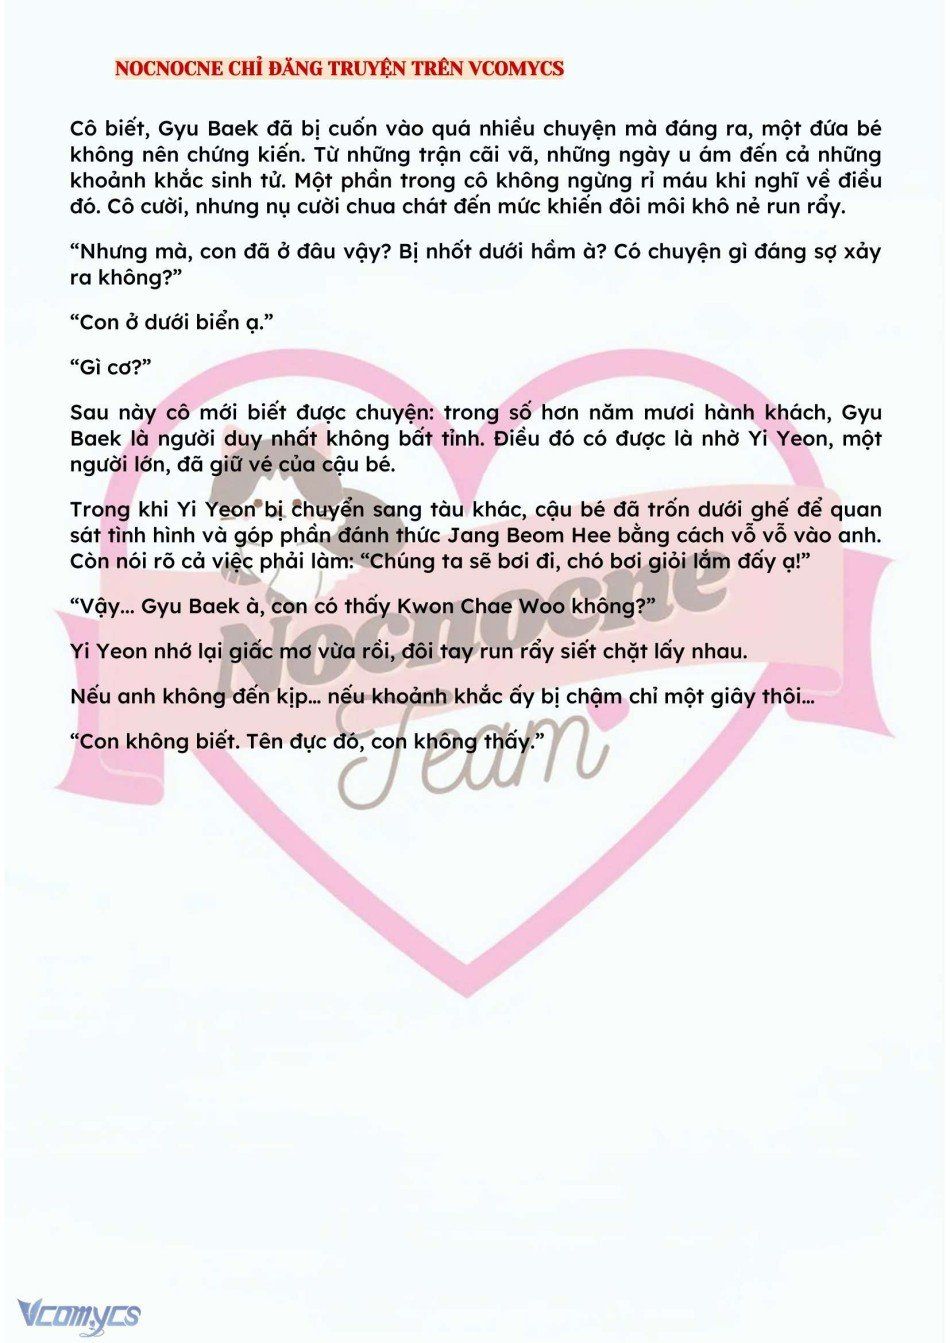 NOCNOCNE CHỈ ĐĂNG TRUYỆN TRÊN VCOMYCS
Cô biết, Gyu Baek đã bị cuốn vào quá nhiều chuyện mà đáng ra, một đứa bé
không nên chứng kiến. Từ những trận cãi vã, những ngày u ám đến cả những
khoảnh khắc sinh tử. Một phần trong cô không ngừng rỉ máu khi nghĩ về điều
đó. Cô cười, nhưng nụ cười chua chát đến mức khiến đôi môi khô nẻ run rẩy.
“Nhưng mà, con đã ở đâu vậy? Bị nhốt dưới hầm à? Có chuyện gì đáng sợ xảy
ra không?”
“Con ở dưới biển ạ.”
“Gì cơ?”
Sau này cô mới biết được chuyện: trong số hơn năm mươi hành khách, Gyu
Baek là người duy nhất không bất tỉnh. Điều đó có được là nhờ Yi Yeon, một
người lớn, đã giữ vé của cậu bé.
Trong khi Yi Yeon bị chuyển sang tàu khác, cậu bé đã trốn dưới ghế để quan
sát tình hình và góp phần đánh thức Jang Beom Hee bằng cách vỗ vỗ vào anh.
Còn nói rõ cả việc phải làm: “Chúng ta sẽ bơi đi, chó bơi giỏi lắm đấy ạ!”
“Vậy... Gyu Baek à, con có thấy Kwon Chae Woo không?”
Yi Yeon nhớ lại giấc mơ vừa rồi, đôi tay run rẩy siết chặt lấy nhau.
Nếu anh không đến kịp... nếu khoảnh khắc ấy bị chậm chỉ một giây thôi...
“Con không biết. Tên đực đó, con không thấy.”
Nocnocne
Team
Vcomycs